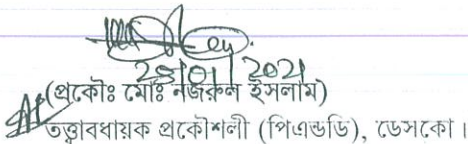 (প্রকৌঃ মোঃ নজরুল ইসলাম)
তত্ত্বাবধায়ক প্রকৌশলী (পিএন্ডডি), ডেসকো।